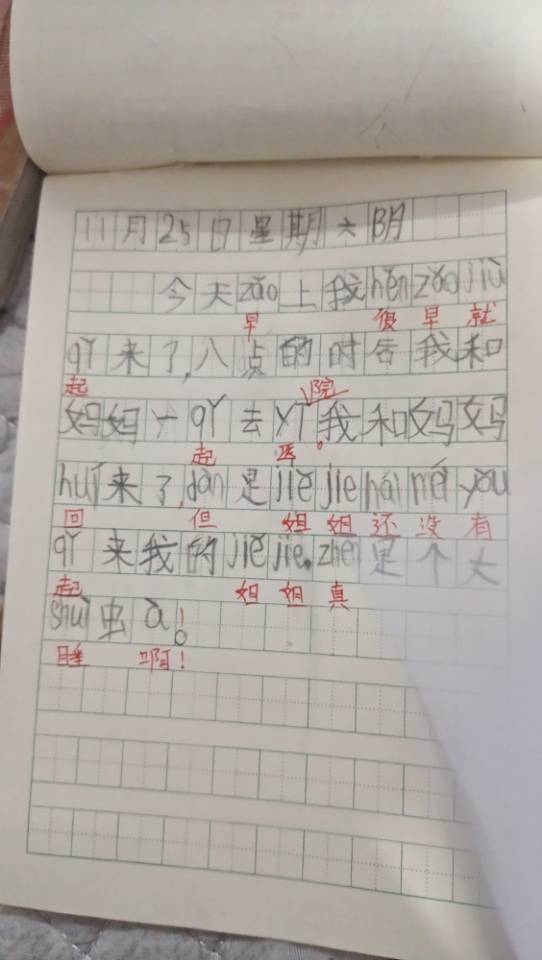 11月25日星期六阴
今天zǎo上我hěnzǎojiù
早很早就
qǐ来了,八点的时后我和
起院
妈妈一qǐ去yī我和妈妈
起医。
huí来了,dàn是jiějiehái méi yǒu
回但姐姐还没有
qǐ来我的jiějie。zhēn是个大
起姐姐真
shuì虫à!
睡啊!